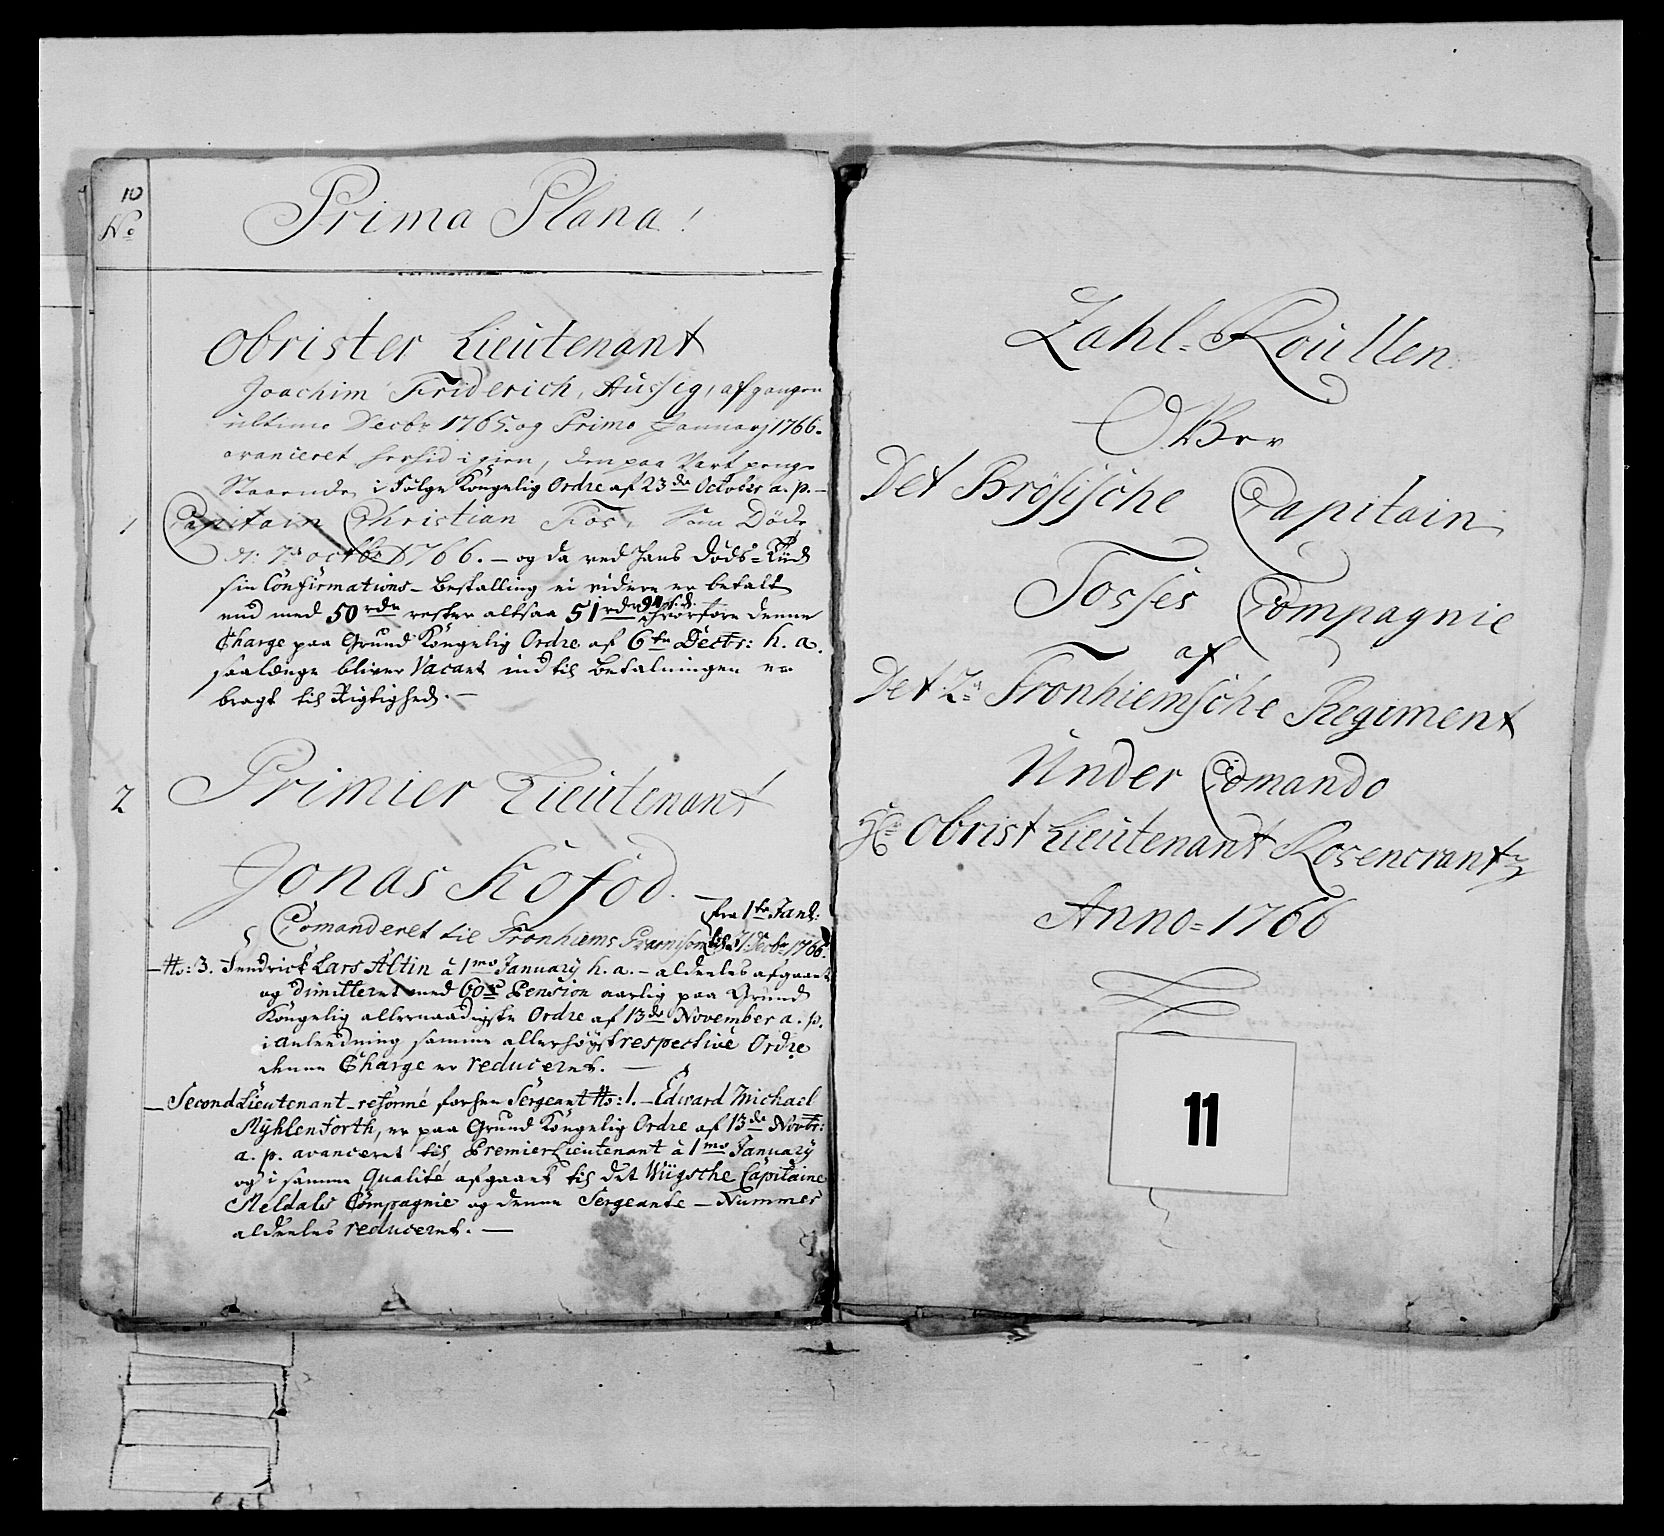 10
No
Prima Plana!
Obrister Lieutenant
Joachim Friderich, Aussig, afgangen
ultimo Decbr 1765. og Primo Januarj 1766.
avanceret herhid igien, den paa Vart penge
Staaende, i Følge Kongelig Ordre af 23de October a. p. —
1 Capitain Christian Fos, Som Døde
d: 7de octbr 1766. — og da ved hans Døds-Tiid
sin Confirmations-bestalling ei videre er betalt
end med 50 rdr rester altsaa 51 rdr hvorfore denne
Charge paa Grund Kongelig Ordre af 6te Decbr: h. a.
saalænge bliver Vacant indtil betalningen er
bragt til Rigtighed. —
2 Primier Lieutenant
Jonas Kofod. —
fra 1te Janu:
Comanderet til Tronhiems Guarnison til Decbr 1766.
— No: 3. Hendrick Lars Altin à 1mo January h. a. — aldeeles afgaaet
og dimitteret med 60 rd Pension aarlig paa Grund
Kongelig allernaadigste Ordre af 13de November a. p.
i anledning samme allerhøyst respective Ordre
denne Charge er reduceret. —
— Second Lieutenant-reformé forhen Sergeant No: 1. — Edvard Michael
Myhlenforth, er paa Grund Kongelig Ordre af 13de Novbr:
a. p. avanceret til Premier Lieutenant à 1mo January
og i samme Qualité afgaaet til det Wiigsche Capitaine
Meldals Compagnie og denne Sergeante — Nummer
aldeeles reduceret. —
Zahl-Roullen
Over
Det Brøsische Capitain
Fosses Compagnie
af
Det 2de Tronhiemsche Regiment
Under Comando
Hr Obrist Lieutenant Rosencrantz
Anno = 1766
11